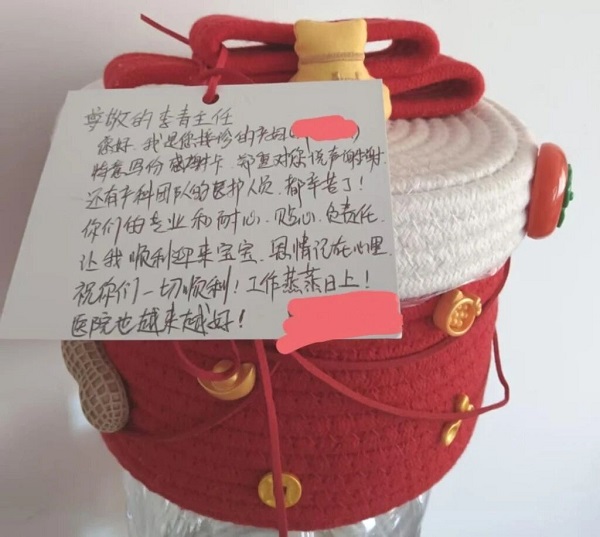 尊敬的李青主任
您好.我是您接诊的先好(
特意写份感谢卡.郑重对您说声谢谢.
还有产科团队的医护人员.都辛苦了!
你们的专业和耐心.贴心.负责任.
让我顺利迎来宝宝.恩情记在心里.
祝你们一切顺利!工作蒸蒸日上!
医院也越来越好!